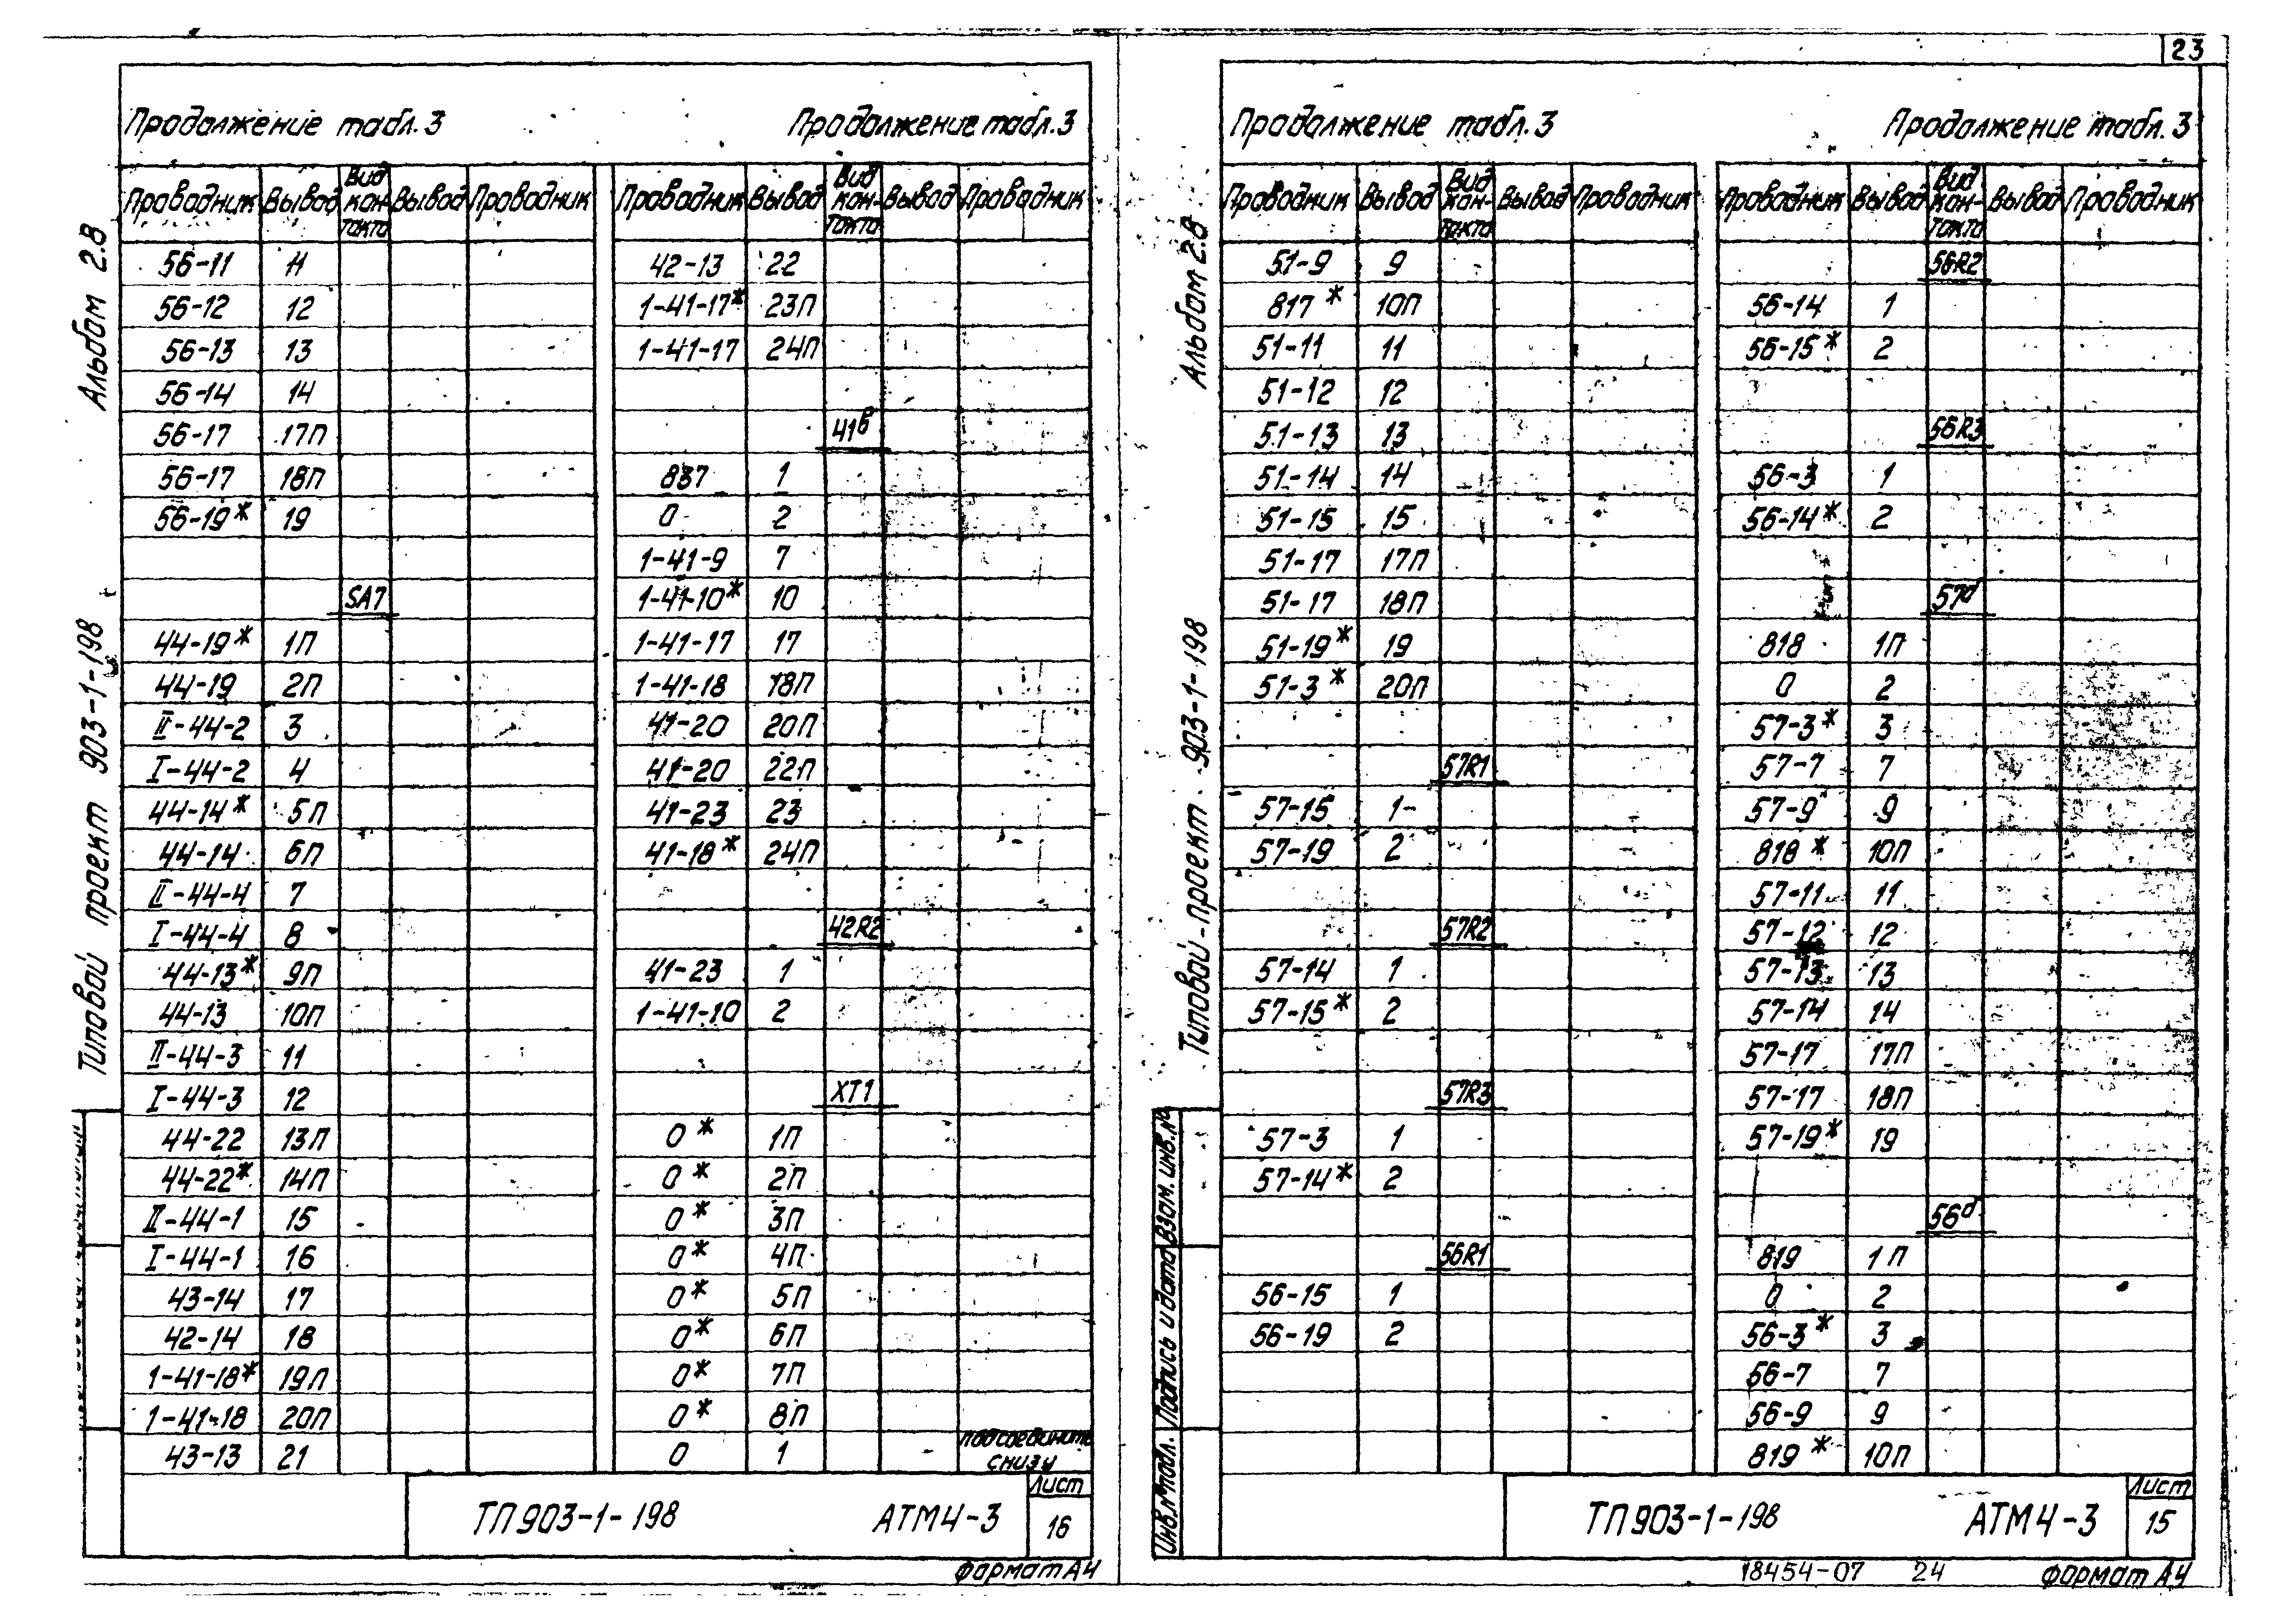 23
Альбом 2.8
Типовой проект 903-1-198
Продолжение табл.3
Проводник Вывод Вид контакта Вывод Проводник
56-11 11
56-12 12
56-13 13
56-14 14
56-17 17П
56-17 18П
56-19* 19
SA7
44-19* 1П
44-19 2П
II-44-2 3
I-44-2 4
44-14* 5П
44-14 6П
II-44-4 7
I-44-4 8
44-13* 9П
44-13 10П
II-44-3 11
I-44-3 12
44-22 13П
44-22* 14П
II-44-1 15
I-44-1 16
43-14 17
42-14 18
1-41-18* 19П
1-41-18 20П
43-13 21
Продолжение табл.3
Проводник Вывод Вид контакта Вывод Проводник
42-13 22
1-41-17* 23П
1-41-17 24П
41в
837 1
0 2
1-41-9 7
1-41-10* 10
1-41-17 17
1-41-18 18П
41-20 20П
41-20 22П
41-23 23
41-18* 24П
42R2
41-23 1
1-41-10 2
XT1
0* 1П
0* 2П
0* 3П
0* 4П
0* 5П
0* 6П
0* 7П
0* 8П
0 1 подсоединить снизу
ТП903-1-198 АТМ4-3
Лист
16
Формат А4
Альбом 2.8
Типовой проект 903-1-198
Взам. инв.№
Подпись и дата
Инв.№подл.
Продолжение табл.3
Проводник Вывод Вид контакта Вывод Проводник
51-9 9
817* 10П
51-11 11
51-12 12
51-13 13
51-14 14
51-15 15
51-17 17П
51-17 18П
51-19* 19
51-3* 20П
57R1
57-15 1
57-19 2
57R2
57-14 1
57-15* 2
57R3
57-3 1
57-14* 2
56R1
56-15 1
56-19 2
Продолжение табл.3
Проводник Вывод Вид контакта Вывод Проводник
56R2
56-14 1
56-15* 2
56R3
56-3 1
56-14* 2
57д
818 1П
0 2
57-3* 3
57-7 7
57-9 9
818* 10П
57-11 11
57-12 12
57-13 13
57-14 14
57-17 17П
57-17 18П
57-19* 19
56д
819 1П
0 2
56-3* 3
56-7 7
56-9 9
819* 10П
ТП903-1-198 АТМ4-3
Лист
15
18454-07 24 Формат А4